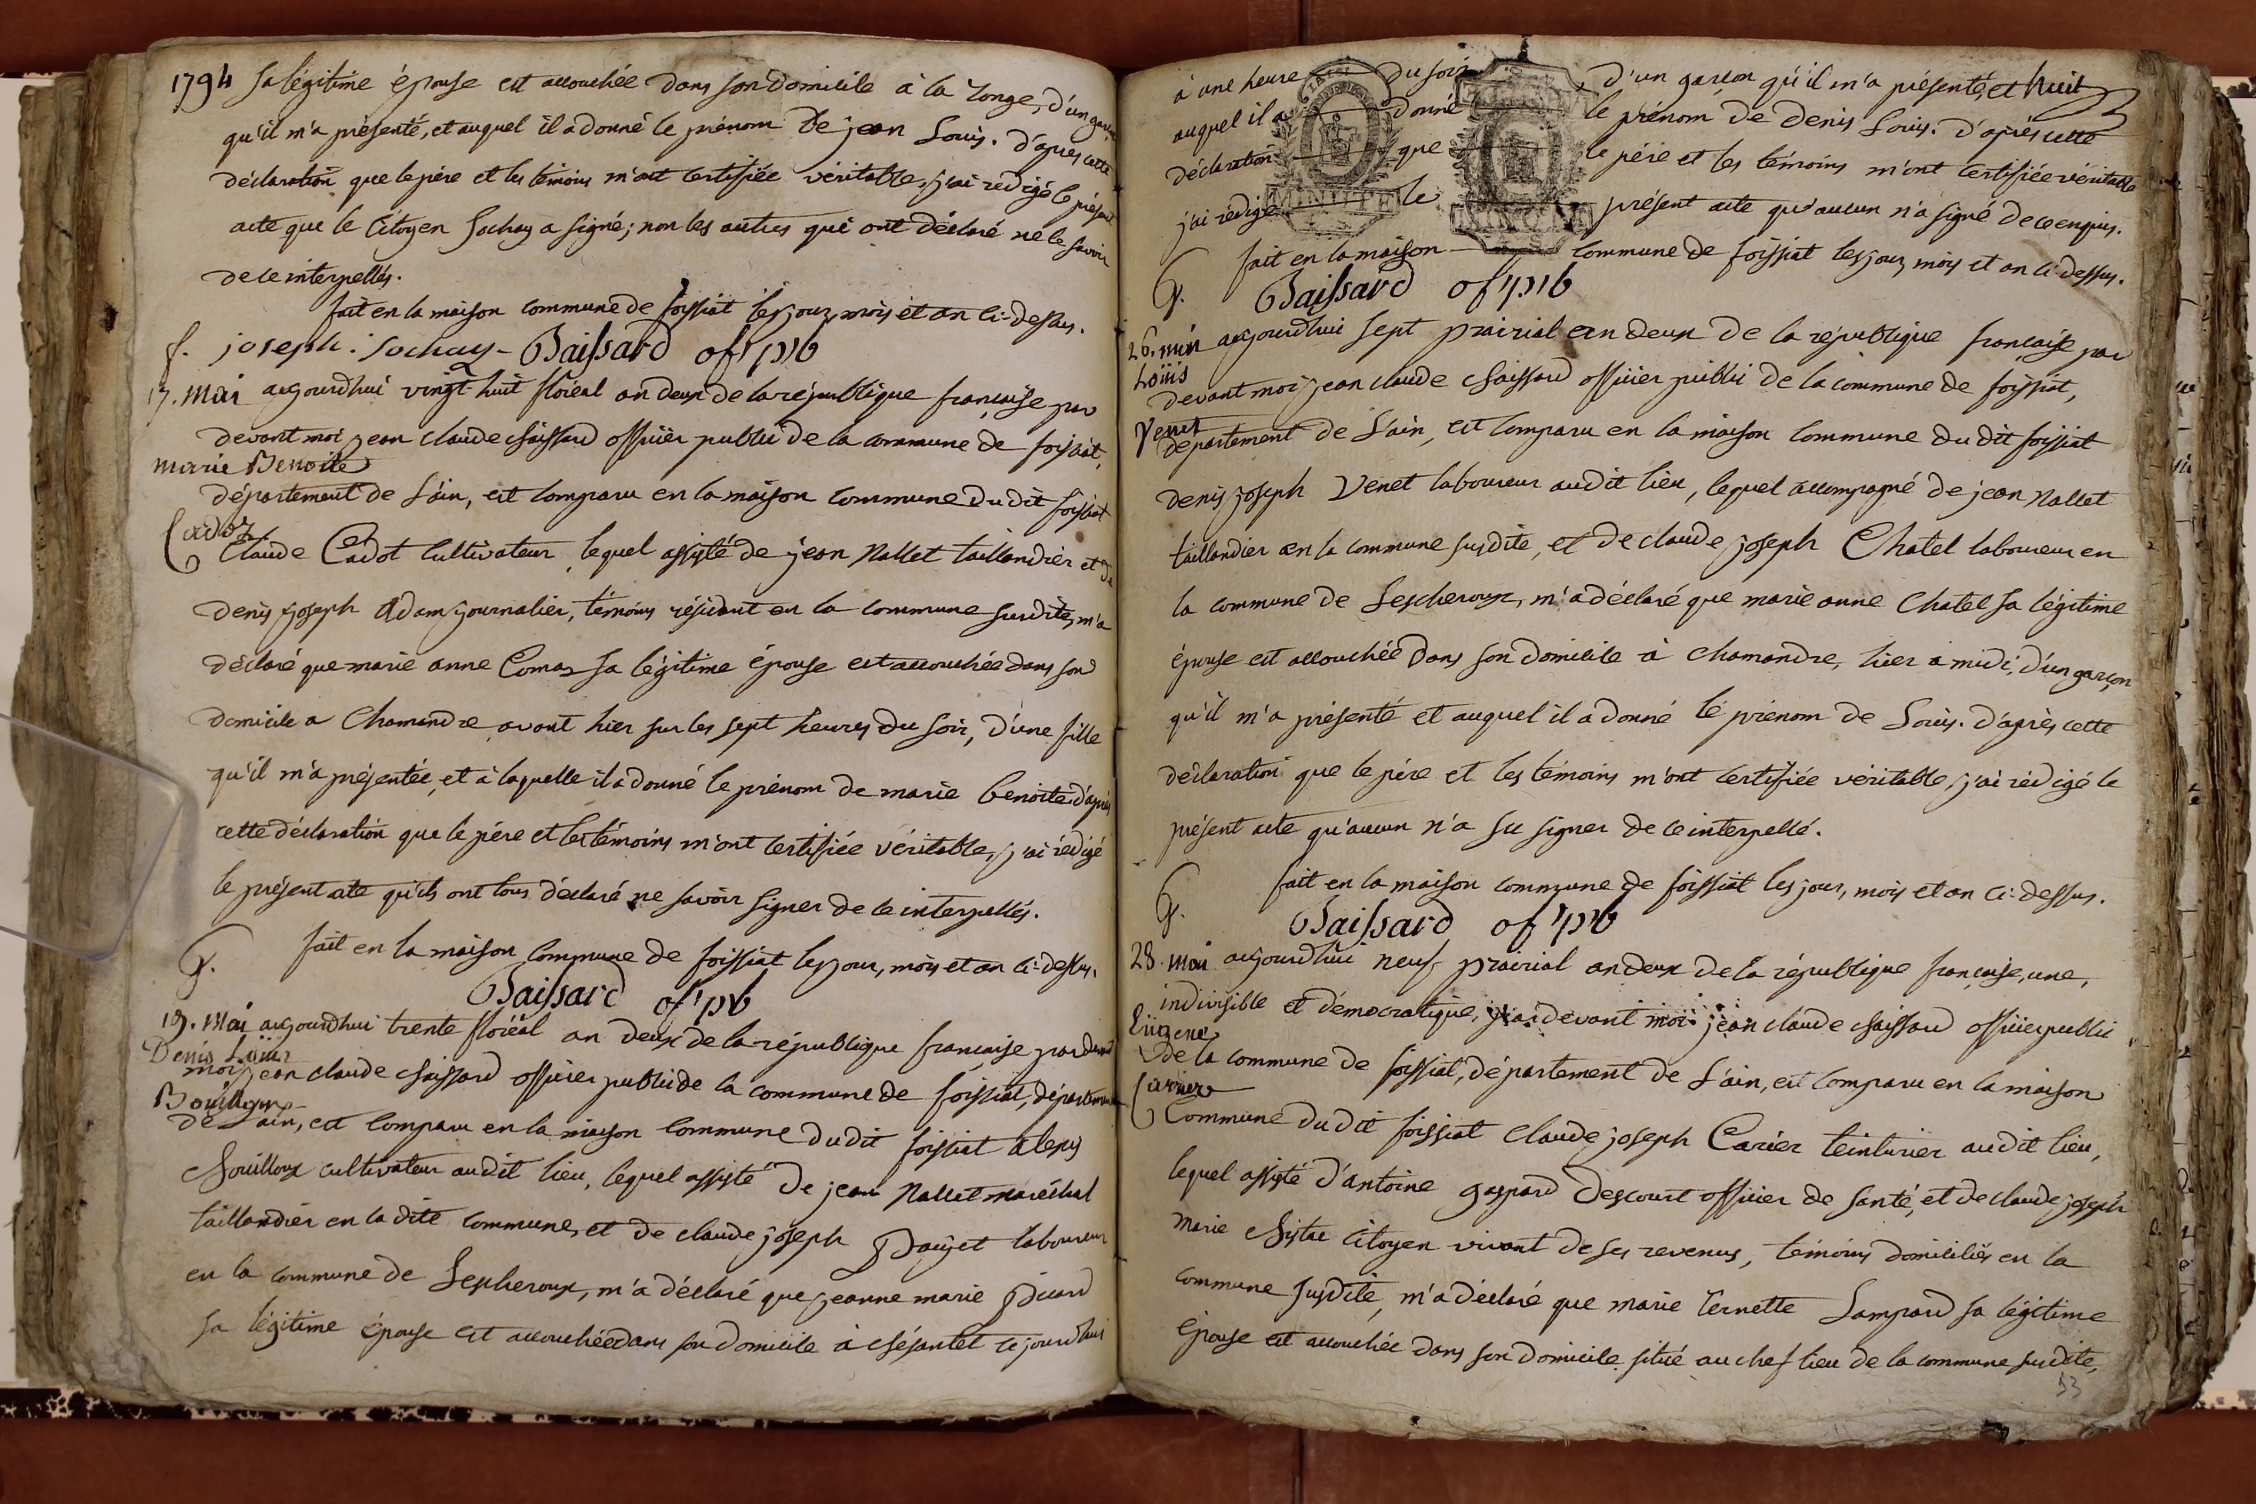 1794 sa légitime épouse est accouchée dans son domicile à la Longe, d'un garçon
qu'il m'a présenté, et auquel il a donné le prénom de jean Louis. d'après cette
déclaration que le père et les témoins m'ont certifiée véritable, j'ai rédigé le présent
acte que le Citoyen Sochay a signé; non les autres qui ont déclaré ne le savoir
de ce interpellés.
fait en la maison commune de foissiat les jour, mois et an ci-dessus.
f. joseph. sochay - Baissard of. pub
17. mai aujourdhui vingt huit floréal an deux de la république française par
devant moi jean claude Baissard officier public de la commune de foissiat,
marie Benoite
département de L'ain, est comparu en la maison commune du dit foissiat
Cadot
Claude Cadot Cultivateur, lequel assisté de jean Nallet taillandier et de
denis joseph Adam journalier, témoins résidant en la commune susdite, m'a
déclaré que marie anne Comas sa légitime épouse est accouchée dans son
domicile a Chamandre avant hier sur les sept heures du soir, d'une fille
qu'il m'a présentée, et à laquelle il a donné le prénom de marie benoite. d'après
cette déclaration que le père et les témoins m'ont certifiée véritable, j'ai rédigé
le présent acte qu'ils ont tous déclaré ne savoir signer de ce interpellés.
fait en la maison commune de foissiat les jour, mois et an ci-dessus.
G. Baissard of. pub
19. mai aujourdhui trente floréal an deux de la république française par devant
Denis Loüis
moi jean claude Baissard officier public de la commune de foissiat, département
Bouilloux
de L'ain, est comparu en la maison commune du dit foissiat alexis
Bouilloux cultivateur audit lieu, lequel assisté de jean Nallet maréchal
taillandier en la dite commune, et de claude joseph Paujet laboureur
en la commune de Lescheroux, m'a déclaré que jeanne marie Picard
sa légitime épouse est accouchée dans son domicile à césantet cejourdhui
à une heure du soir d'un garçon qu'il m'a présenté, et huit
auquel il a donné le prénom de denis Louis. d'après cette
déclaration que le père et les témoins m'ont certifiée véritable
j'ai rédigé le présent acte qu'aucun n'a signé de ce enquis.
MINUTE
fait en la maison commune de foissiat les jour, mois et an ci-dessus.
G. Baissard of. pub
26. mai aujourdhui sept prairial an deux de la république française par
Loüis
devant moi jean claude Baissard officier public de la commune de foissiat,
Venet
département de L'ain, est comparu en la maison commune du dit foissiat
denis joseph Venet laboureur audit lieu, lequel accompagné de jean Nallet
taillandier en la commune susdite, et de claude joseph Chatel laboureur en
la commune de Lescheroux, m'a déclaré que marie anne Chatel sa légitime
épouse est accouchée dans son domicile à chamandre, hier a midi, d'un garçon
qu'il m'a présenté et auquel il a donné le prénom de Louis. d'après cette
déclaration que le père et les témoins m'ont certifiée véritable, j'ai rédigé le
présent acte qu'aucun n'a su signer de ce interpellé.
fait en la maison commune de foissiat les jour, mois et an ci-dessus.
G. Baissard of. pub
28. mai aujourdhui neuf prairial an deux de la république française, une,
indivisible et démocratique, par devant moi jean claude Baissard officier public
Eugene
de la commune de foissiat, département de L'ain, est comparu en la maison
Carier
Commune du dit foissiat Claude joseph Carier teinturier audit lieu,
lequel assisté d'antoine gaspard Descourt officier de santé, et de claude joseph
marie citoyen vivant de ses revenus, témoins domiciliés en la
commune susdite, m'a déclaré que marie Lampard sa légitime
épouse est accouchée dans son domicile situé au chef lieu de la commune susdite,
53